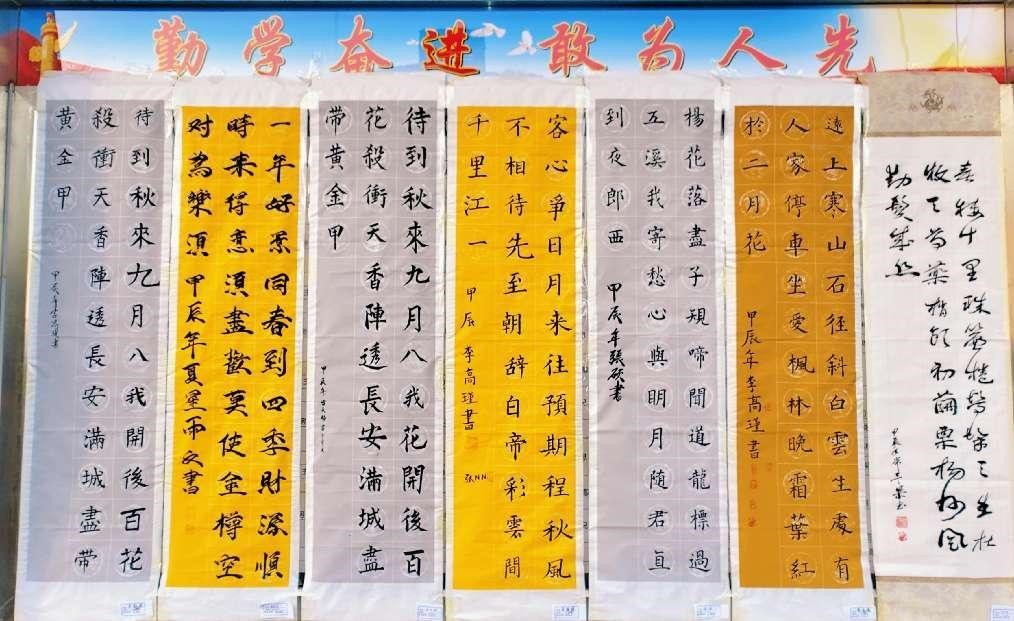 勤学奋进 敢为人先
待到秋來九月八我開後百花
殺衝天香陣透長安滿城盡帶
黃金甲
甲辰年
書
一年好景同春到四季財源順
時来得意須盡歡莫使金樽空
对為樂須 甲辰年夏星雨文書
待到秋來九月八我花開後百
花殺衝天香陣透長安滿城盡
帶黃金甲
甲辰年
客心爭日月来往預期程秋風
不相待先至朝辞白帝彩雲間
千里江一
甲辰 李高瑾書
楊花落盡子規啼聞道龍標過
五溪我寄愁心與明月随君直
到夜郎西
甲辰年張
書
遠上寒山石径斜白雲生處有
人家停車坐愛楓林晚霜葉紅
於二月花
甲辰年李高瑾書
十里珠簾捲髣髴三生杜
牧之芍藥梢頭初繭栗楊州風
物鬢成絲
甲辰